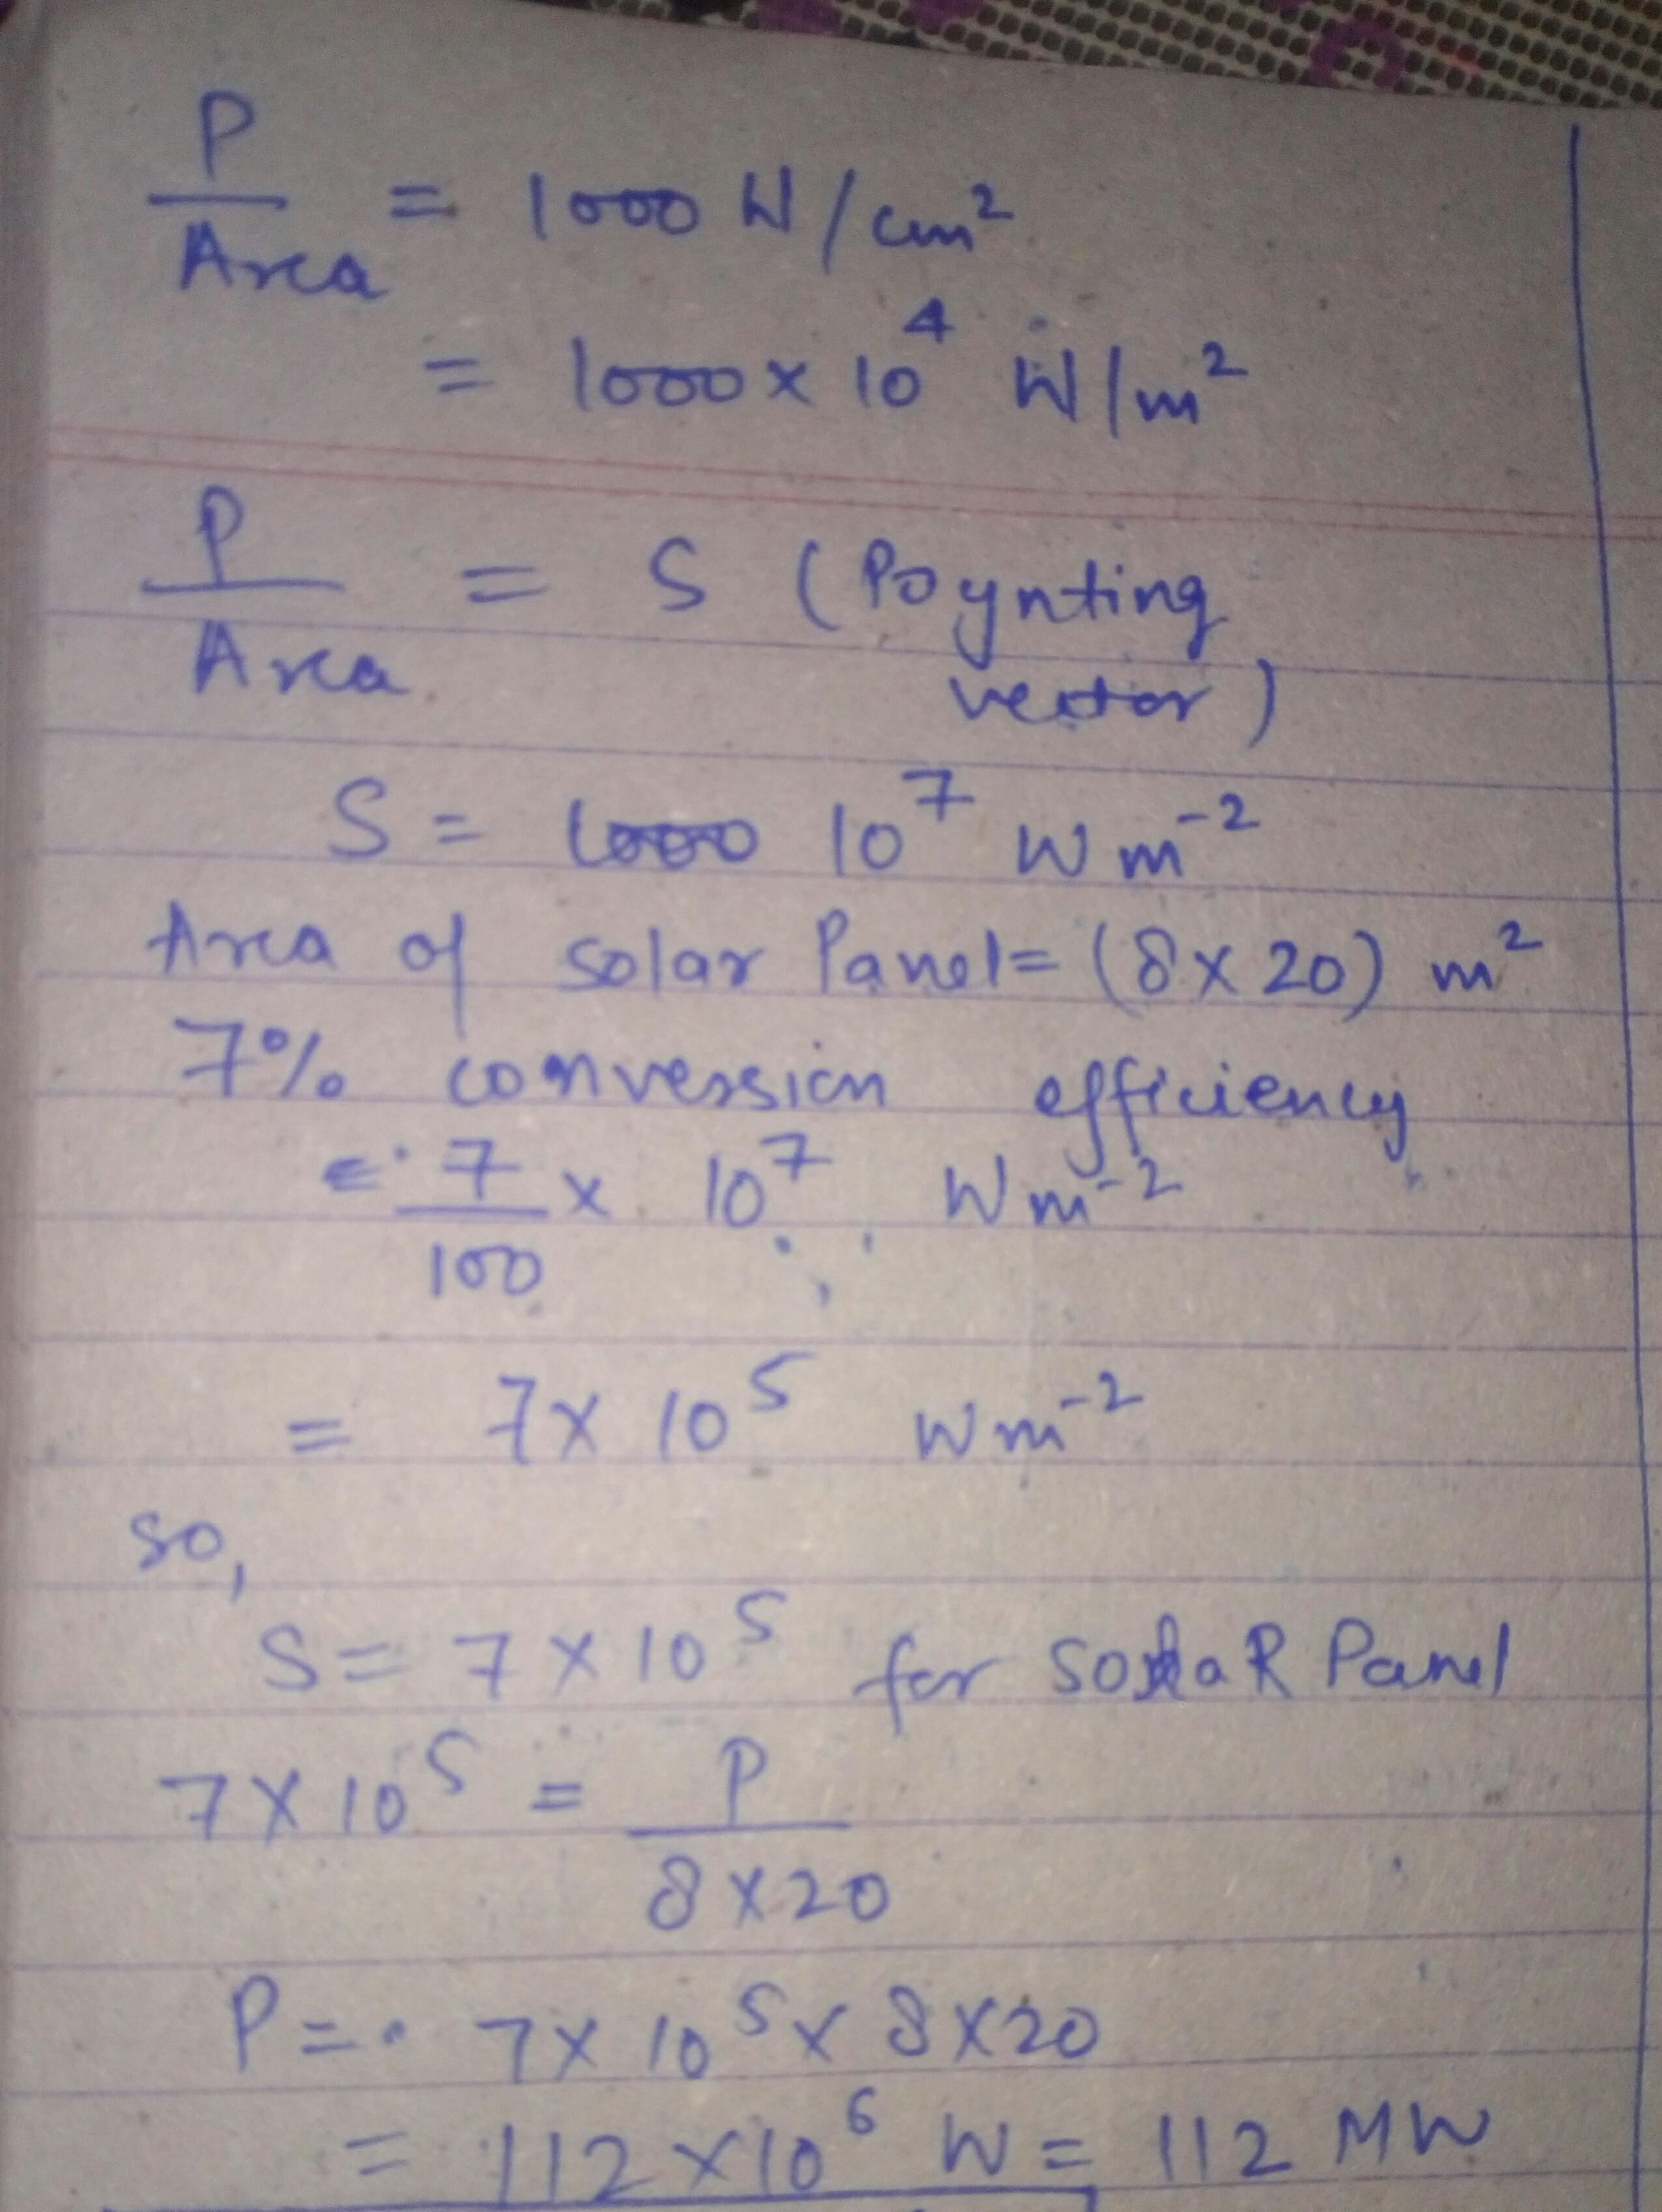 P
/ Area = 1000 W/cm²
= 1000 × 10⁴ W/m²
P
/ Area = S (Poynting
vector)
S = 1000 10⁷ W m⁻²
Area of solar Panel = (8 × 20) m²
7% conversion efficiency
= 7/100 × 10⁷ W m⁻²
= 7 × 10⁵ W m⁻²
so,
S = 7 × 10⁵ for SolaR Panel
7 × 10⁵ = P / 8 × 20
P = 7 × 10⁵ × 8 × 20
= 112 × 10⁶ W = 112 MW